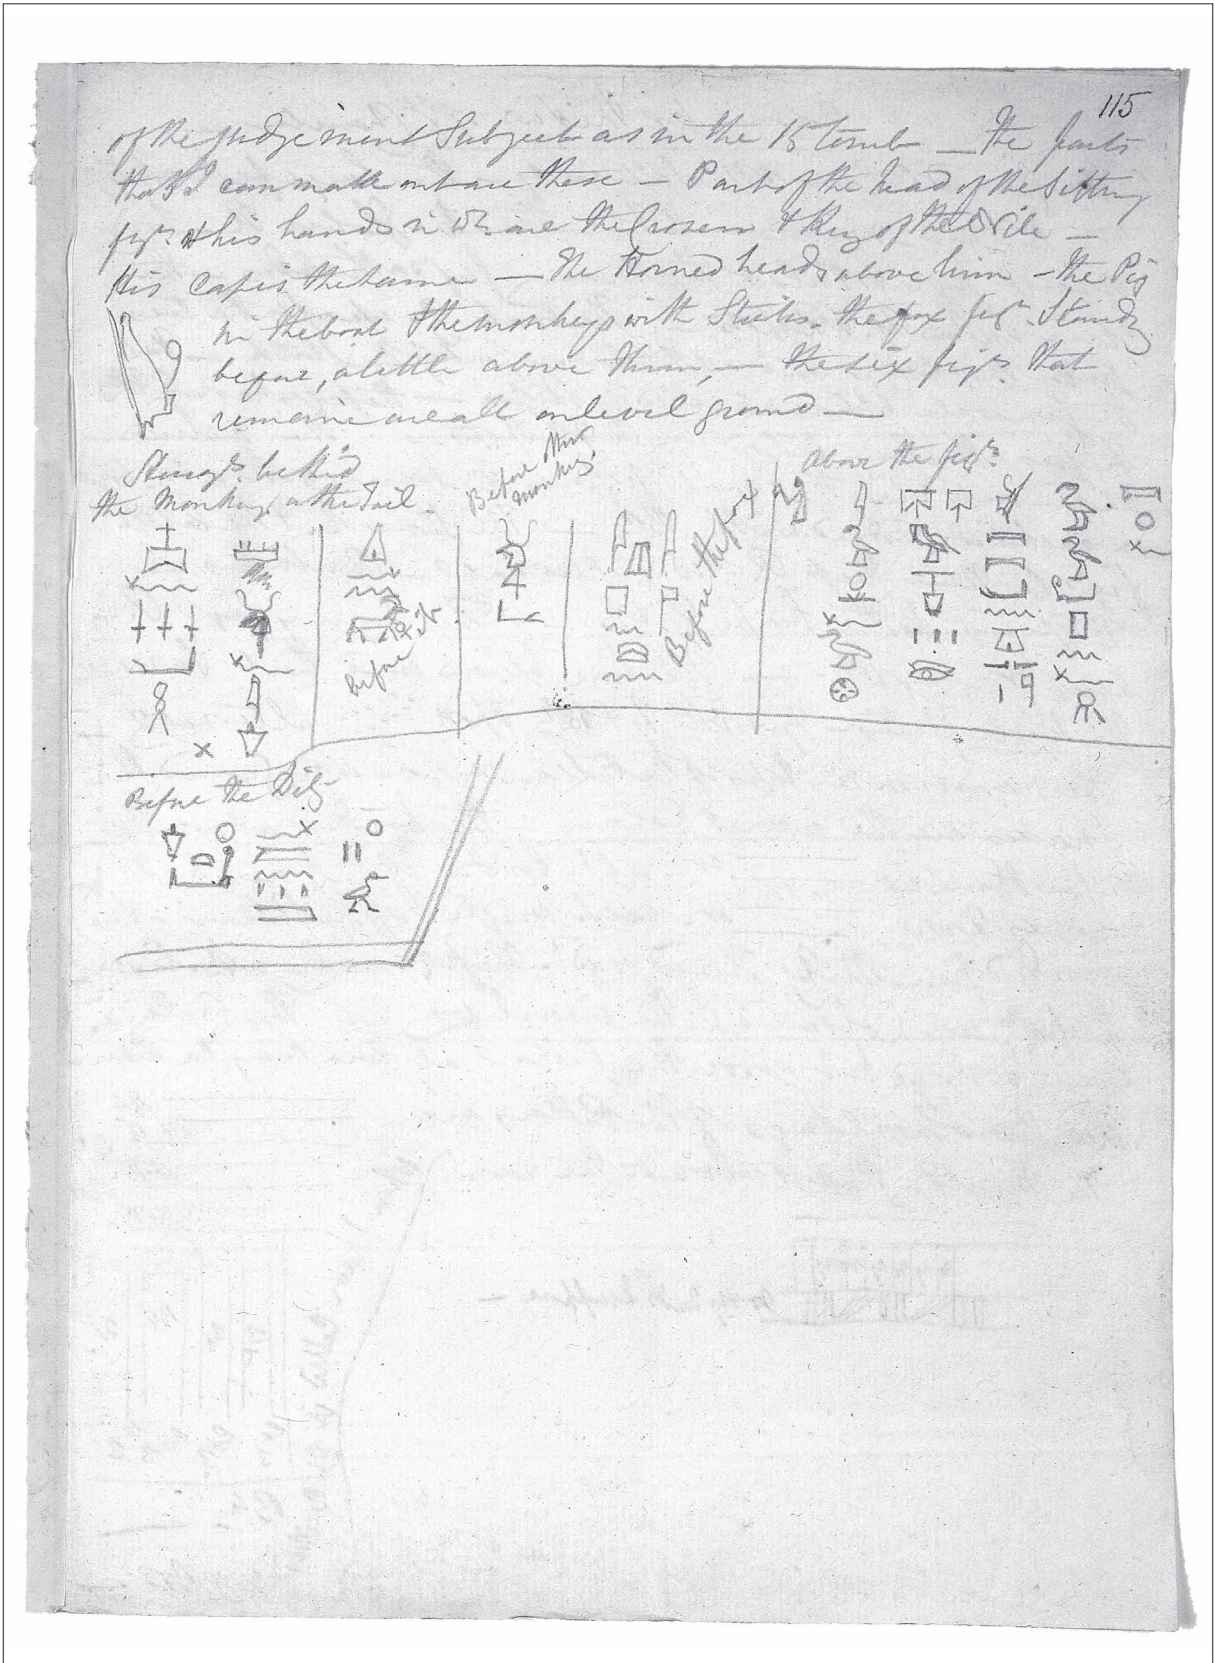 115
of the judgement Subject as in the 15 tomb — the parts
that I can make out are these — Part of the head of the Sitting
figr. & his hands in wh. are the Crosier & Key of the Nile —
His cap is the same — The Horned heads above him — the Pig
in the boat & the monkeys with Sticks. the fox figr. Standg
before, a little above them, — the six figrs. that
remain are all on level ground —
behind
the Monkey, on the Tail.
Before other
monkey
Before the fox
Above the figrs.
Before
Before the Pig